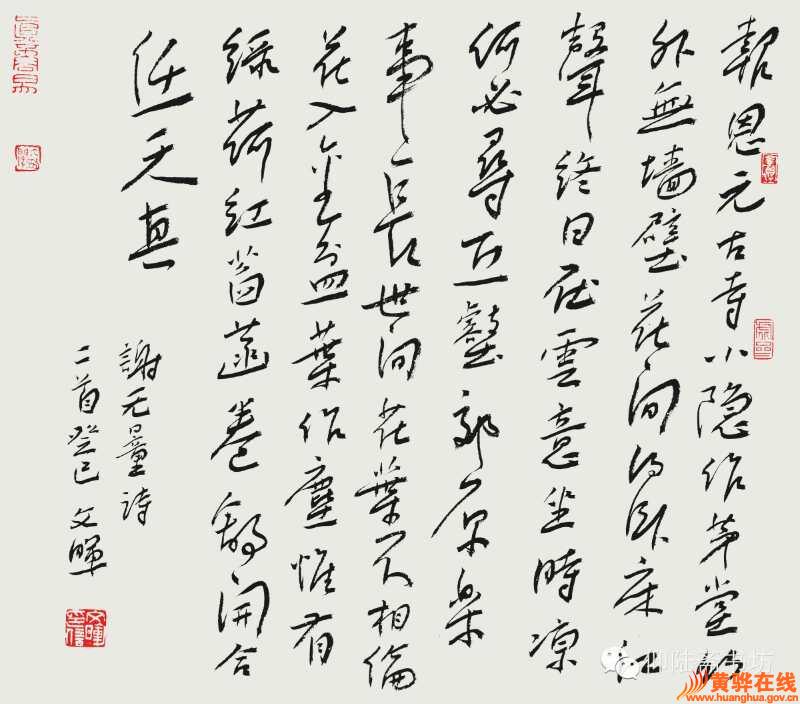 報恩元古寺小隐作茅堂
外無墙壁花间得卧床江
聲终日在雲意坐時凉
何必尋丘壑郊原樂
事長世间花葉不相倫
花入金盆葉作塵惟有
绿荷红菡萏卷舒開合
任天真
謝无量詩
二首癸巳文暉
黄骅在线
www.huanghua.gov.cn